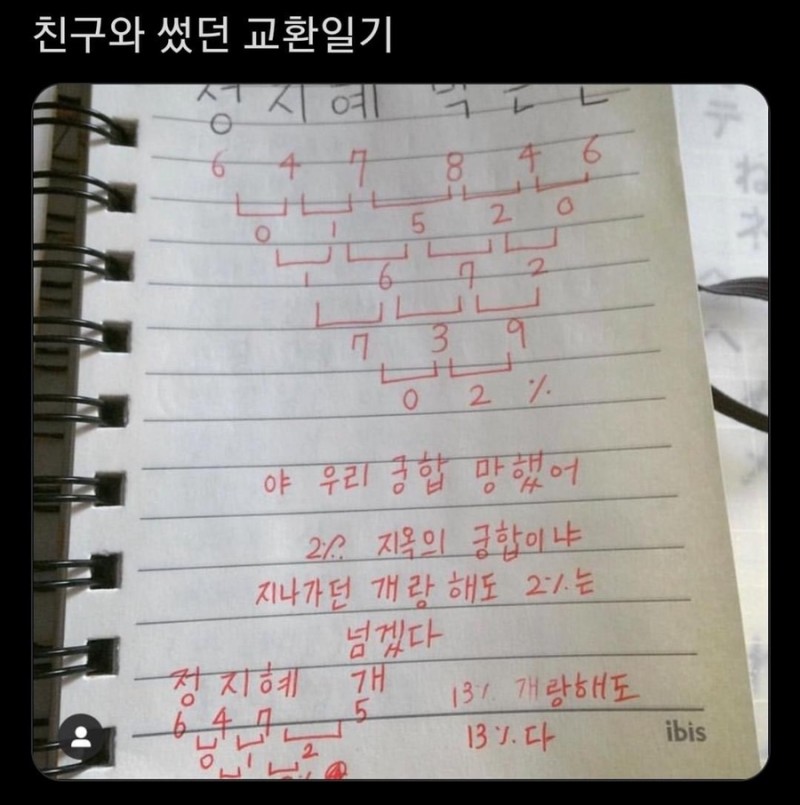 친구와 썼던 교환일기
정 지 혜
6 4 7 8 4 6
0 1 5 2 0
1 6 7 2
7 3 9
0 2 %
야 우리 궁합 망했어
2% 지옥의 궁합이냐
지나가던 개랑 해도 2%는
넘겠다
정 지혜 개
6 4 7 5
0 1 2
13% 개랑해도
13%다
ibis